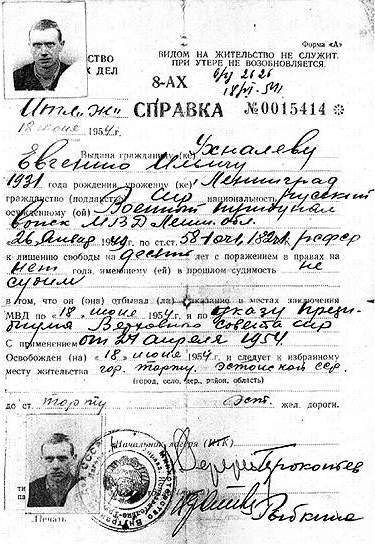 Форма «А»
СТВО
Х ДЕЛ
ВИДОМ НА ЖИТЕЛЬСТВО НЕ СЛУЖИТ.
ПРИ УТЕРЕ НЕ ВОЗОБНОВЛЯЕТСЯ.
8-АХ
18/VI-54
СПРАВКА №0015414 *
18 июня 1954 г.
Выдана гражданину (ке) Ухналеву
Евгению Ильичу
1931 года рождения, уроженцу (ке) Ленинград
гражданство (подданство) СССР национальность русский
осужденному (ой) Военный трибунал
войск МВД Ленинг. обл.
26 января по ст.ст. РСФСР
к лишению свободы на десять лет с поражением в правах на
нет года, имеющему (ей) в прошлом судимость не
судим
в том, что он (она) отбывал (ла) наказание в местах заключения
МВД по « 18 » июня 1954 г. и по указу Прези-
диума Верховного Совета СССР
С применением от 24 апреля 1954
Освобожден (на) « 18 » июня 1954 и следует к избранному
месту жительства гор. Тарту. Эстонской ССР.
(город, село, дер., район, область)
до ст. Тарту Эст. жел. дороги.
Начальник лагеря (ИТК)
Прокопьев
Рыбкина
Печать